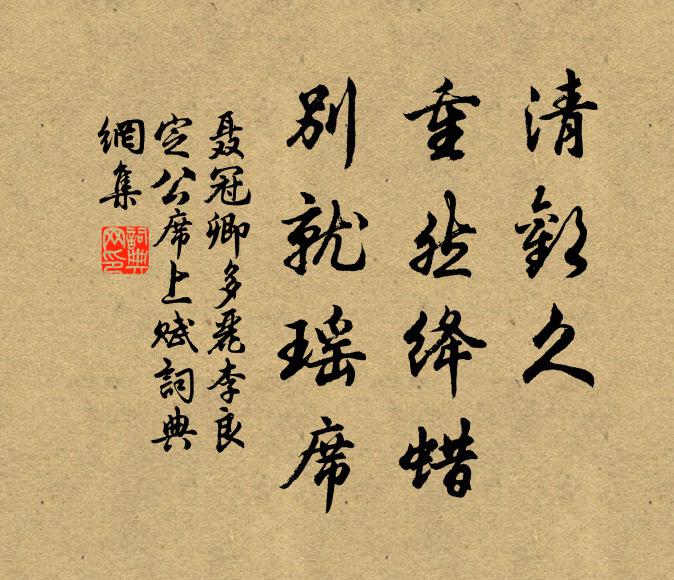 清歡久
重然絳蜡
別就瑶席
聂冠卿多麗李良
定公席上赋詞典
網集
詞典
网印